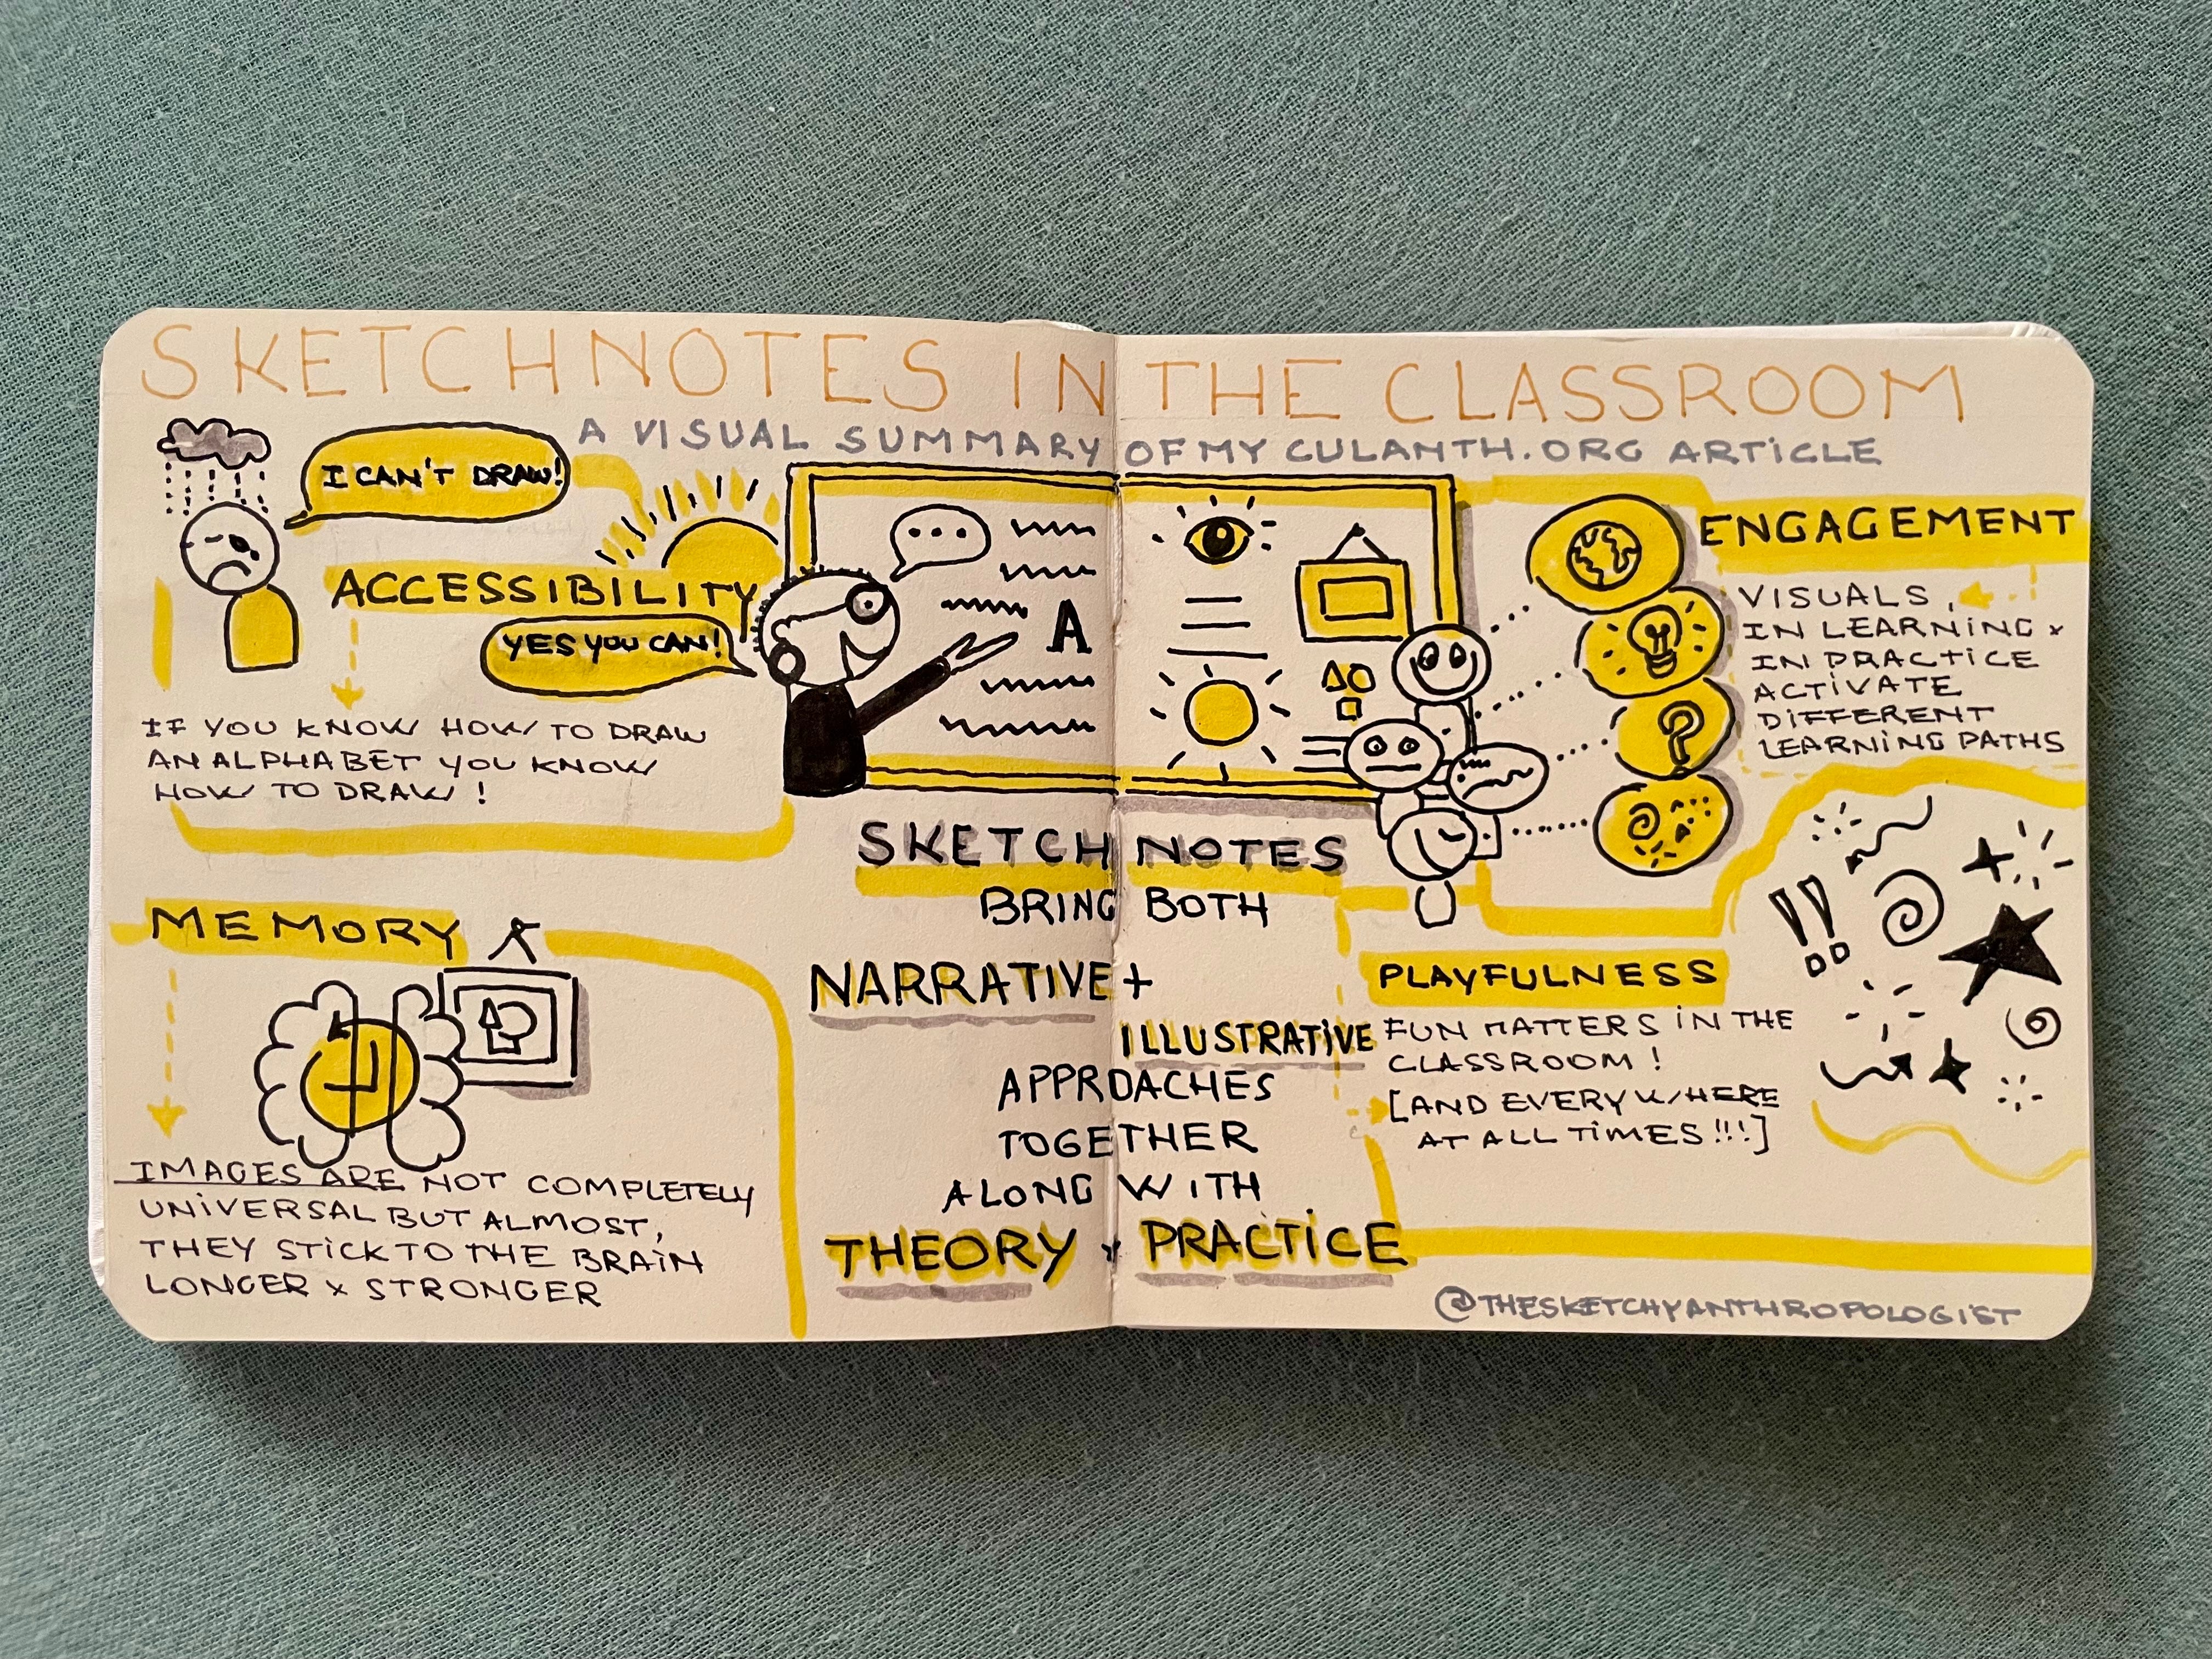 SKETCHNOTES IN THE CLASSROOM
A VISUAL SUMMARY OF MY CULANTH.ORG ARTICLE
I CAN'T DRAW!
ACCESSIBILITY
YES YOU CAN!
IF YOU KNOW HOW TO DRAW
AN ALPHABET YOU KNOW
HOW TO DRAW!
A
MEMORY
IMAGES ARE NOT COMPLETELY
UNIVERSAL BUT ALMOST,
THEY STICK TO THE BRAIN
LONGER x STRONGER
SKETCHNOTES
BRING BOTH
NARRATIVE +
ILLUSTRATIVE
APPROACHES
TOGETHER
ALONG WITH
THEORY x PRACTICE
?
ENGAGEMENT
VISUALS,
IN LEARNING x
IN PRACTICE
ACTIVATE
DIFFERENT
LEARNING PATHS
!!
PLAYFULNESS
FUN MATTERS IN THE
CLASSROOM!
[AND EVERYWHERE
AT ALL TIMES!!!]
@THESKETCHYANTHROPOLOGIST